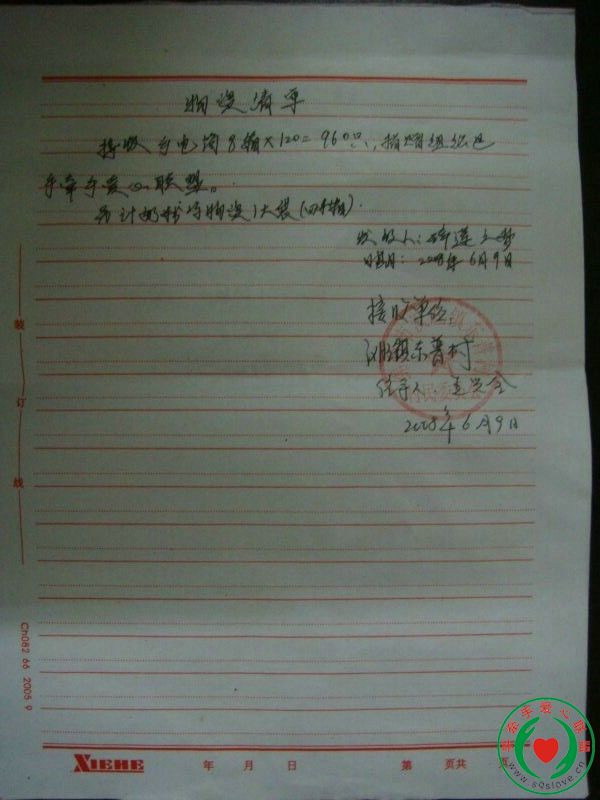 物资清单
接收手电筒8箱×120=960只,捐赠组织是
手牵手爱心联盟。
另计奶粉等物资1大袋(四箱).
发放人:
日期: 2008年6月9日
接收单位:
汉旺镇东普村
2008年6月9日
装
订
线
Ch082 66 2005 9
XIEHE
年 月 日
第 页共
手牵手爱心联盟
www.sqslove.cn